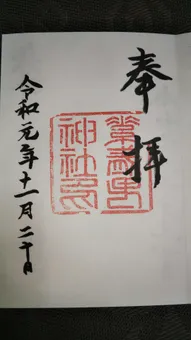 奉拝
神社印
令和元年十一月二十日